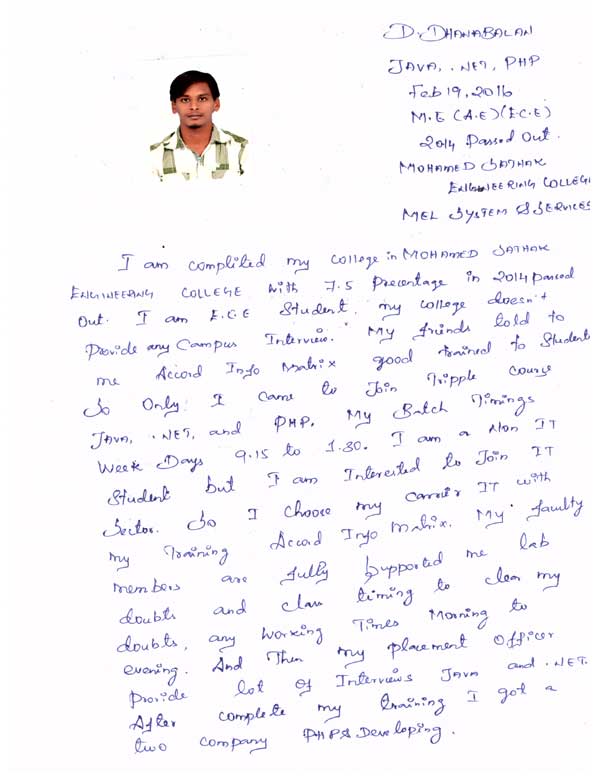 D. DHANABALAN
JAVA, .NET, PHP
Feb 19, 2016
M.E (A.E) (E.C.E)
2014 Passed Out.
MOHAMED SATHAK
ENGINEERING COLLEGE
MEL SYSTEM & SERVICES
I am complited my college in MOHAMED SATHAK
ENGINEERING COLLEGE with 7.5 Precentage in 2014 passed
Out. I am E.C.E Student. my college doesn't
Provide any Campus Interview. My friends told to
me Accord Info Matrix good trained to Students
So Only I came to Join Tripple course
JAVA, .NET, and PHP. My Batch Timings
Week Days 9.15 to 1.30. I am a Non IT
Student but I am Interested to Join IT
Sector. So I choose my carrier IT with
my Training Accord Info Matrix. My faulty
members are fully supported me lab
doubts and class timing to clear my
doubts, any working Times Morning to
evening. And Then my placement Officer
Provide lot of Interviews Java and .NET.
After complete my training I got a
two company PHP Developing.